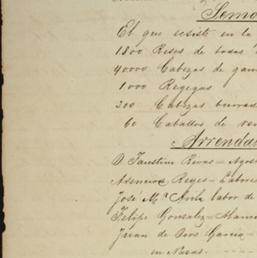 Semo
El que existe en la
1800 Reses de todas
40000 Cabezas de gan
1000 Yeguas
200 Cabezas burrada
60 Caballos de
Arrendat
D. Faustino Rivas - Agos
Asencion Reyes - Labores
José Ma. Avila labor de
Felipe Gonzalez - Alam
Juan de Dios Garcia -
en Navas.